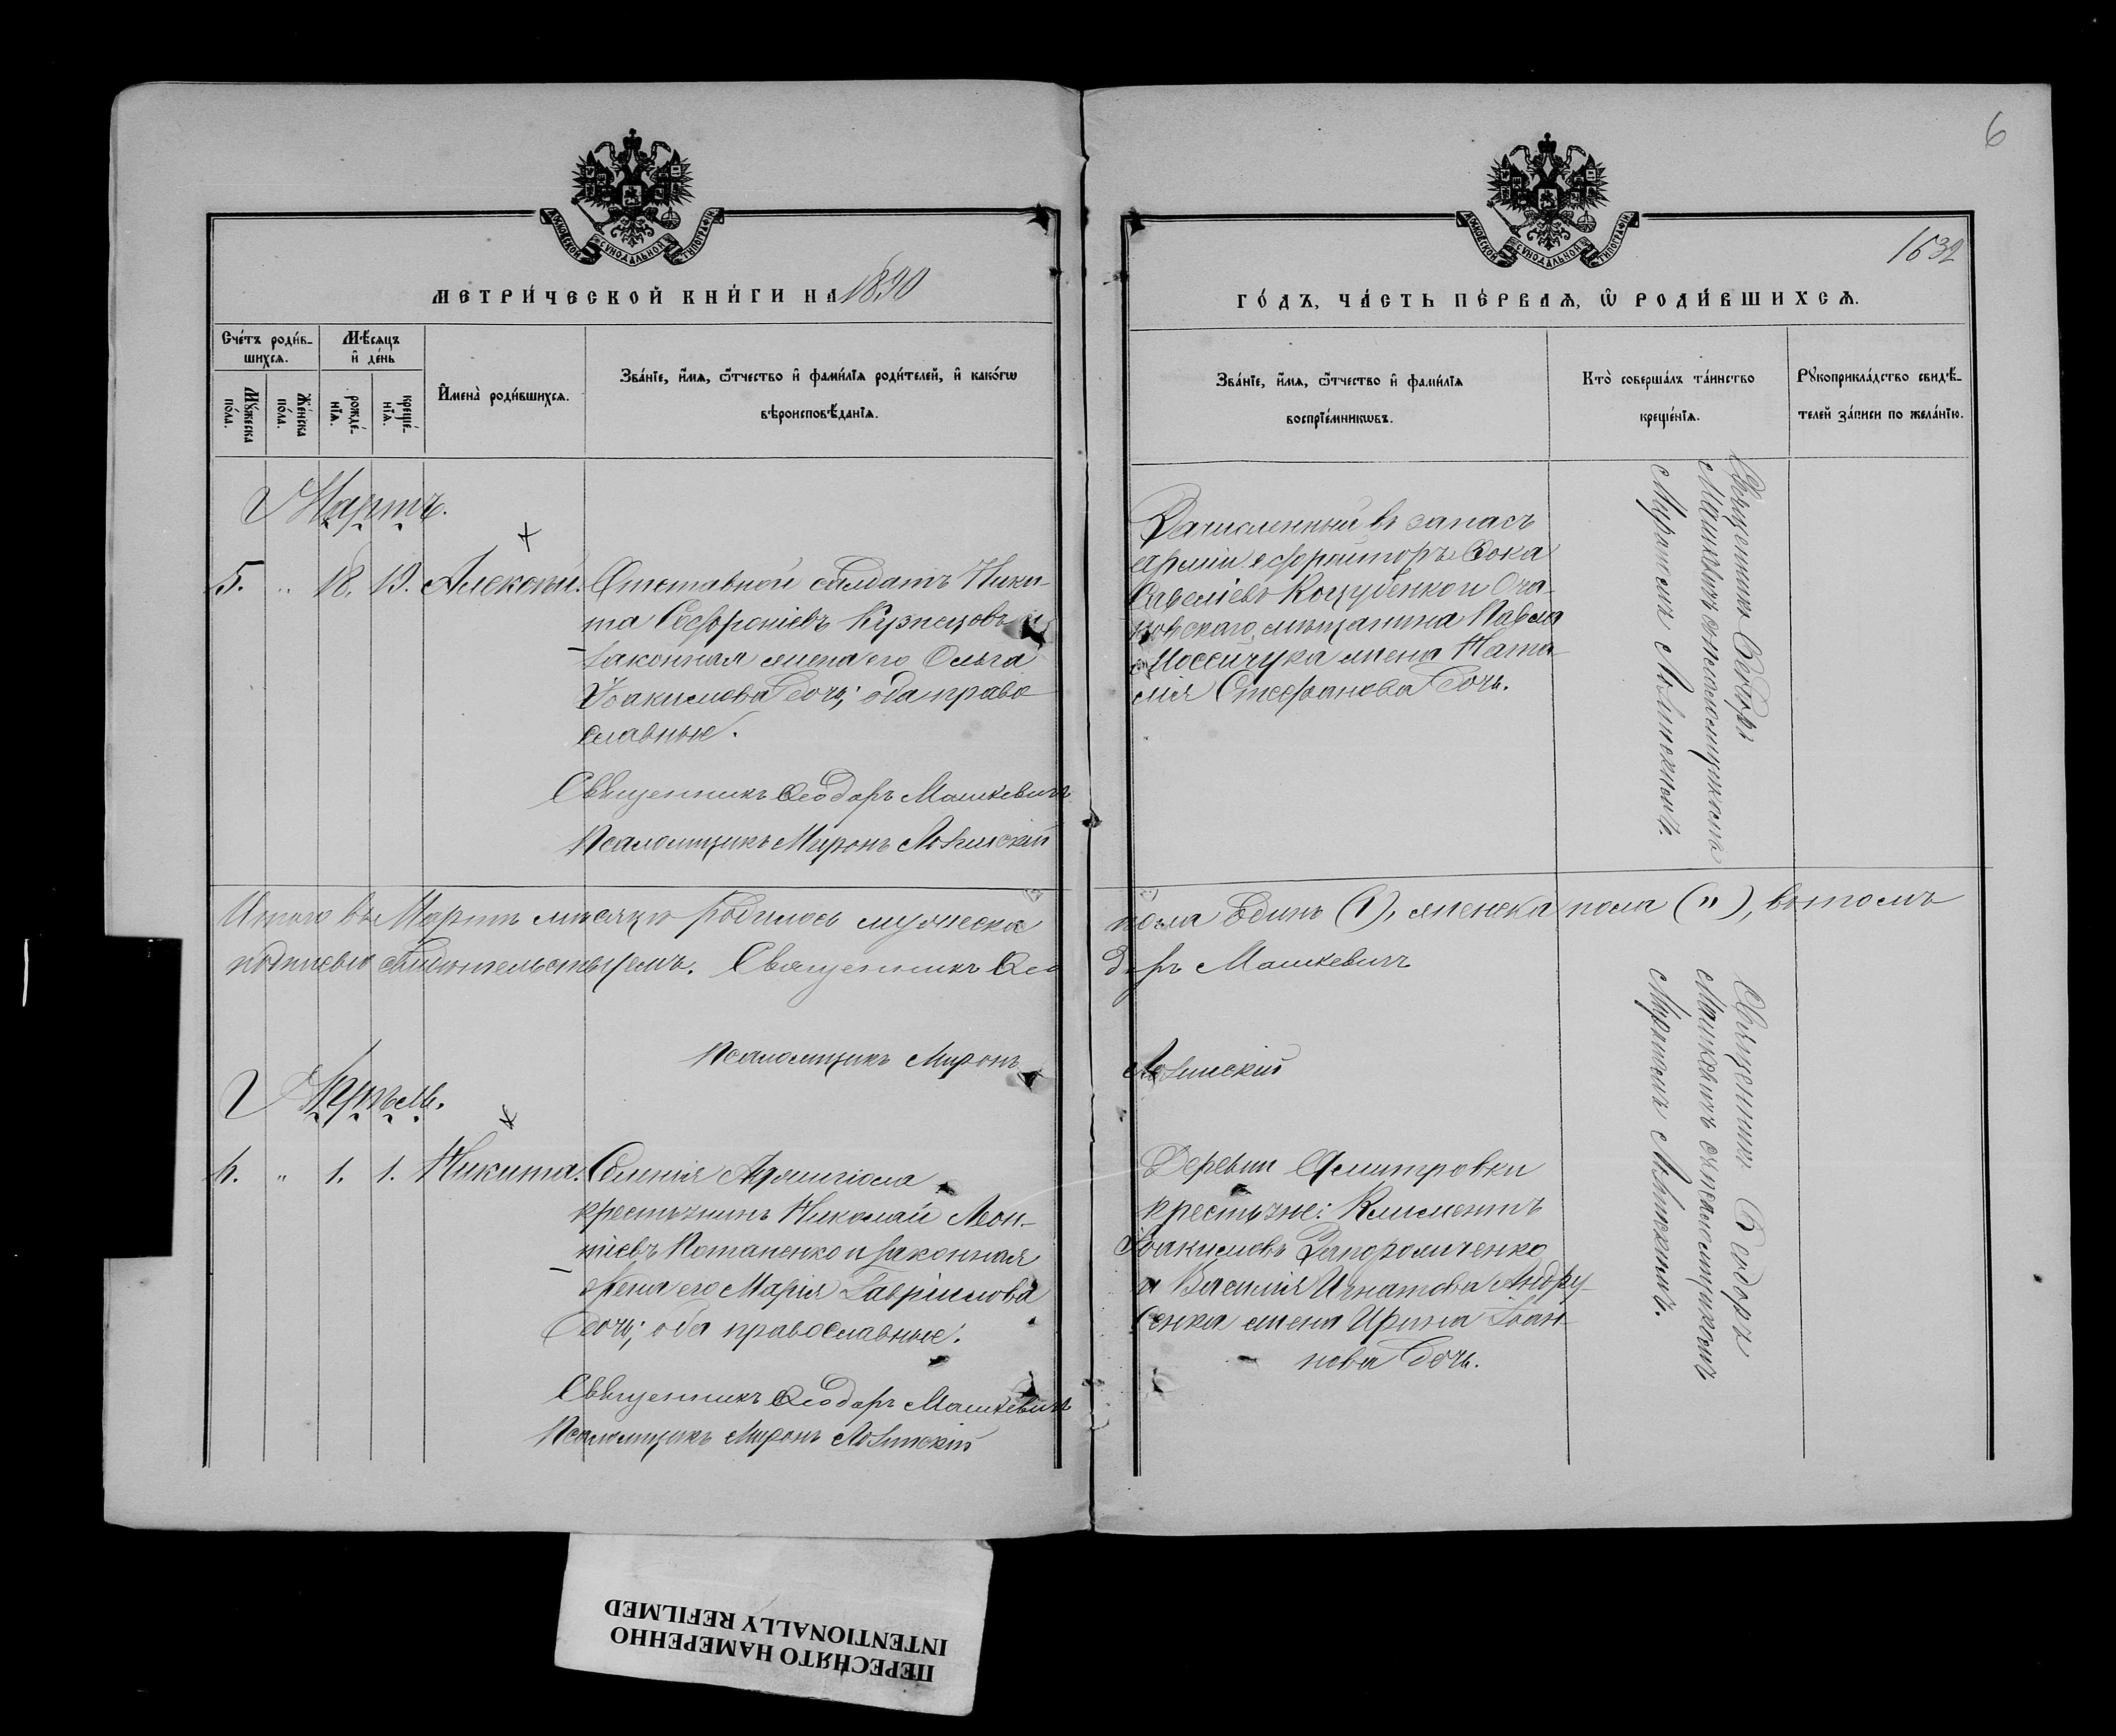 6
1632
МОСКОВСКОЙ СѴНОДАЛЬНОЙ ТИПОГРАФІИ
МОСКОВСКОЙ СѴНОДАЛЬНОЙ ТИПОГРАФІИ
МЕТРИ́ЧЕСКОЙ КНИ́ГИ НА 1890
ГО́ДЪ, ЧА́СТЬ ПЕ́РВАѦ, Ѡ҆ РОДИ́ВШИХСѦ.
Сче́тъ роди́в-
шихсѧ.
Мѣ́сѧцъ
и҆ де́нь
Мꙋ́жеска
по́ла.
Же́нска
по́ла.
рожде́-
нїѧ.
креще́-
нїѧ.
И҆мена̀ роди́вшихсѧ.
Зва́нїе, и҆́мѧ, ѻ҆́тчество и҆ фами́лїѧ роди́телей, и҆ како́гѡ
вѣроисповѣ́данїѧ.
Зва́нїе, и҆́мѧ, ѻ҆́тчество и҆ фами́лїѧ
воспрїе́мникѡвъ.
Кто̀ соверша́лъ та́инство
креще́нїѧ.
Рꙋкоприкла́дство свидѣ́-
телей за́писи по жела́нїю.
Мартъ.
5. " 18. 19. Алексѣй. Отставной солдатъ Ники-
та Софроніевъ Кузнецовъ и
законная жена его Ольга
Іоакимова дочь; оба право
славные.
Священникъ Ѳеодоръ Машкевичъ
Псаломщикъ Миронъ Лозинскій
Зачисленный въ запасъ
арміи ефрейторъ Ѳока
Савеліевъ Коцубенко и Оча-
ковскаго мѣщанина Павла
Мосейчука жена Ната-
лія Стефанова дочь.
Священникъ Ѳеодоръ
Машкевичъ съ псаломщикомъ
Мирономъ Лозинскимъ.
Итого въ Мартѣ мѣсяцѣ родилось мужеска пола одинъ (1), женска пола ("), въ томъ
подписью свидѣтельствуемъ. Священникъ Ѳеодоръ Машкевичъ
Псаломщикъ Миронъ Лозинскій
Апрѣль.
6. " 1. 1. Никита. Селенія
крестьянинъ Николай Леон-
тіевъ Потапенко и законная
жена его Марія Гавріилова
дочь; оба православные.
Священникъ Ѳеодоръ Машкевичъ
Псаломщикъ Миронъ Лозинскій
Деревни Дмитровки
крестьяне: Климентъ
Іоакимовъ Запорожченко
и Василія Игнатова Андру-
сенка жена Ирина Іоан-
нова дочь.
Священникъ Ѳеодоръ
Машкевичъ съ псаломщикомъ
Мирономъ Лозинскимъ.
ПЕРЕСНЯТО НАМЕРЕННО
INTENTIONALLY REFILMED